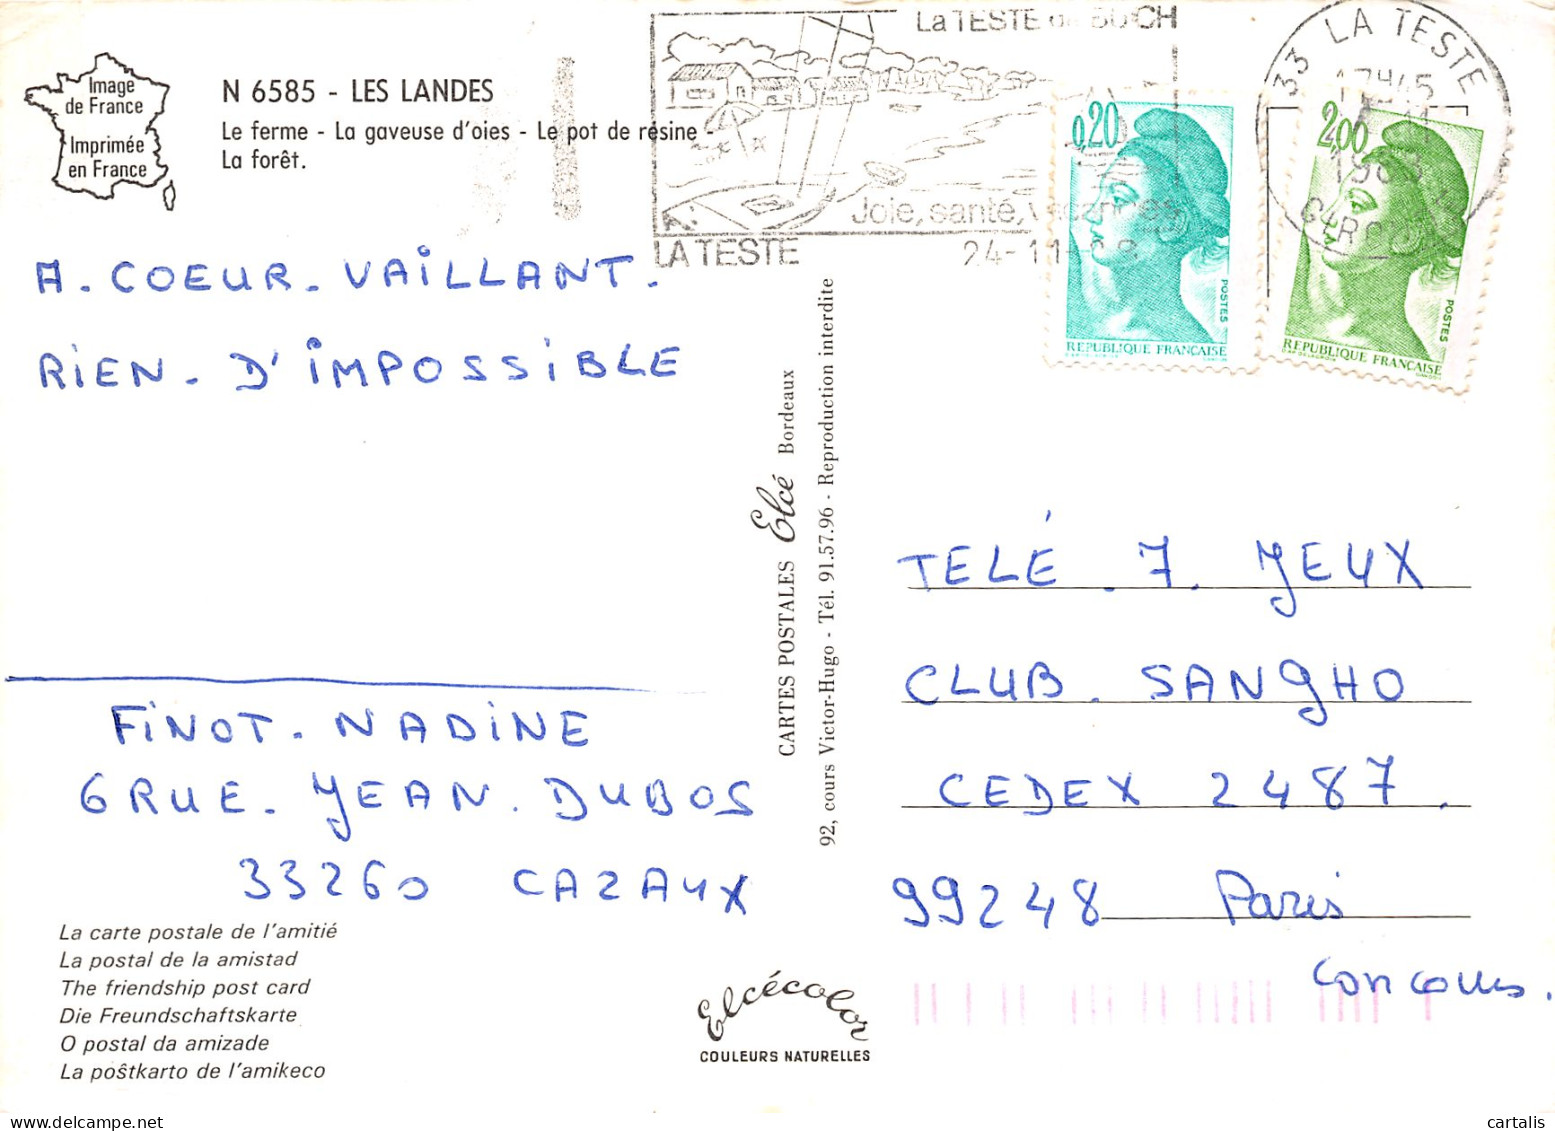 Image
de France
Imprimée
en France
N 6585 - LES LANDES
Le ferme - La gaveuse d'oies - Le pot de résine -
La forêt.
La TESTE de BUCH
Joie, santé, vacances
LA TESTE
24-11-
33 LA TESTE
17H45
GIRONDE
0,20
POSTES
REPUBLIQUE FRANÇAISE
2,00
POSTES
REPUBLIQUE FRANÇAISE
A. COEUR. VAILLANT.
RIEN. D'IMPOSSIBLE
CARTES POSTALES Elcé Bordeaux
92, cours Victor-Hugo - Tél. 91.57.96 - Reproduction interdite
TELÉ. 7. JEUX
CLUB. SANGHO
CEDEX 2487.
99248 Paris
Concours.
FINOT. NADINE
6 RUE. JEAN. DUBOS
33260 CAZAUX
La carte postale de l'amitié
La postal de la amistad
The friendship post card
Die Freundschaftskarte
O postal da amizade
La poŝtkarto de l'amikeco
Elcécolor
COULEURS NATURELLES
cartalis